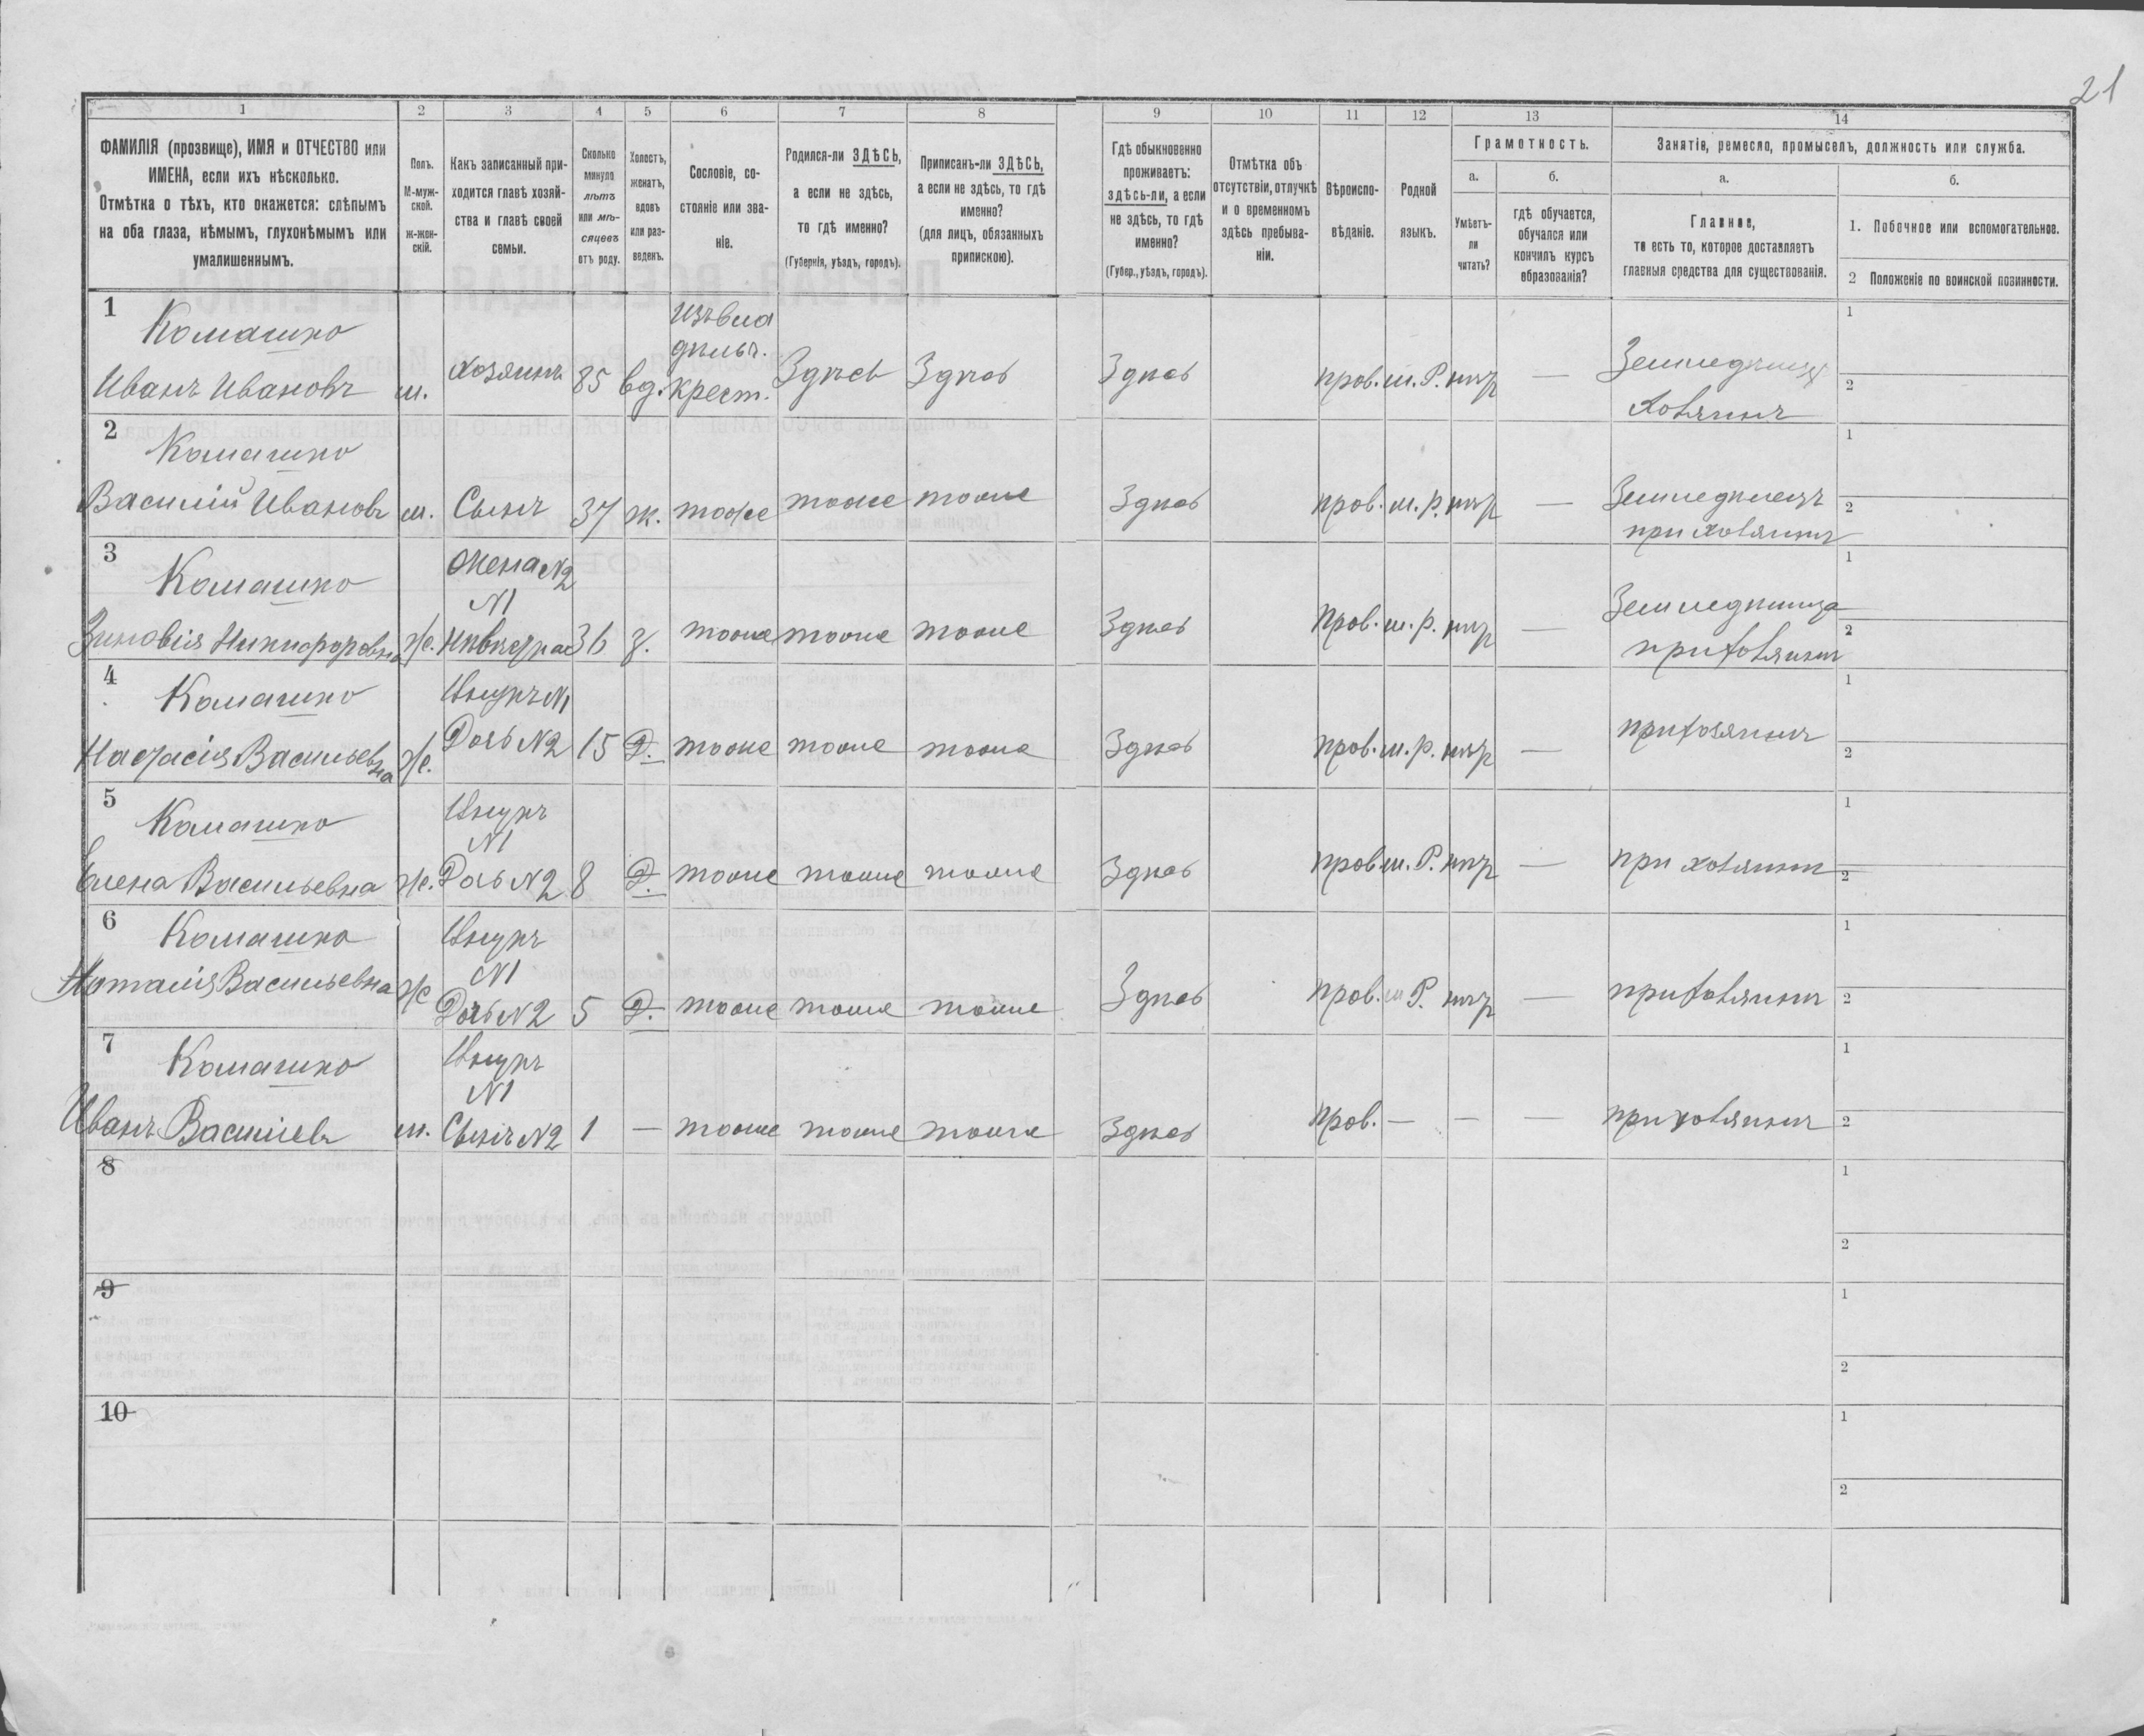 21
1
2
3
4
5
6
7
8
9
10
11
12
13
14
ФАМИЛІЯ (прозвище), ИМЯ и ОТЧЕСТВО или
ИМЕНА, если ихъ нѣсколько.
Отмѣтка о тѣхъ, кто окажется: слѣпымъ
на оба глаза, нѣмымъ, глухонѣмымъ или
умалишеннымъ.
Полъ.
М-муж-
ской.
ж-жен-
скій.
Какъ записанный при-
ходится главѣ хозяй-
ства и главѣ своей
семьи.
Сколько
минуло
лѣтъ
или мѣ-
сяцевъ
отъ роду.
Холостъ,
женатъ,
вдовъ
или раз-
веденъ.
Сословіе, со-
стояніе или зва-
ніе.
Родился-ли ЗДѢСЬ,
а если не здѣсь,
то гдѣ именно?
(Губернія, уѣздъ, городъ).
Приписанъ-ли ЗДѢСЬ,
а если не здѣсь, то гдѣ
именно?
(для лицъ, обязанныхъ
припискою).
Гдѣ обыкновенно
проживаетъ:
здѣсь-ли, а если
не здѣсь, то гдѣ
именно?
(Губер., уѣздъ, городъ).
Отмѣтка объ
отсутствіи, отлучкѣ
и о временномъ
здѣсь пребыва-
ніи.
Вѣроиспо-
вѣданіе.
Родной
языкъ.
Грамотность.
а.
Умѣетъ-
ли
читать?
б.
гдѣ обучается,
обучался или
кончилъ курсъ
образованія?
Занятіе, ремесло, промыселъ, должность или служба.
а.
Главное,
то есть то, которое доставляетъ
главныя средства для существованія.
б.
1. Побочное или вспомогательное.
2 Положеніе по воинской повинности.
1
Комашко
Иванъ Ивановъ
м.
хозяинъ
85
вд.
крест.
Здѣсь
Здѣсь
Здѣсь
прав.
м. Р.
нѣт
—
Земледѣлецъ
хозяинъ
1
2
2
Комашко
Василій Ивановъ
м.
Сынъ
37
ж.
тоже
тоже
тоже
Здѣсь
прав.
м. р.
нѣт
—
Земледѣлецъ
при хозяинѣ
1
2
3
Комашко
Зиновія Никифоровна
ж.
жена N2
N1
невестка
36
з.
тоже
тоже
тоже
Здѣсь
прав.
м. р.
нѣт
—
Земледѣлица
при хозяинѣ
1
2
4
Комашко
Настасія Васильевна
ж.
Внукъ N1
Дочь N2
15
Д.
тоже
тоже
тоже
Здѣсь
прав.
м. р.
нѣт
—
при хозяинѣ
1
2
5
Комашко
Елена Васильевна
ж.
Внукъ
N1
Дочь N2
8
Д.
тоже
тоже
тоже
Здѣсь
прав.
м. Р.
нѣт
—
при хозяинѣ
1
2
6
Комашко
Наталія Васильевна
ж
Внукъ
N1
Дочь N2
5
Д.
тоже
тоже
тоже
Здѣсь
прав.
м Р.
нѣт
—
при хозяинѣ
1
2
7
Комашко
Иванъ Васильев
м.
Внукъ
N1
Сынъ N2
1
—
тоже
тоже
тоже
Здѣсь
прав.
—
—
—
при хозяинѣ
1
2
8
1
2
9
1
2
10
1
2